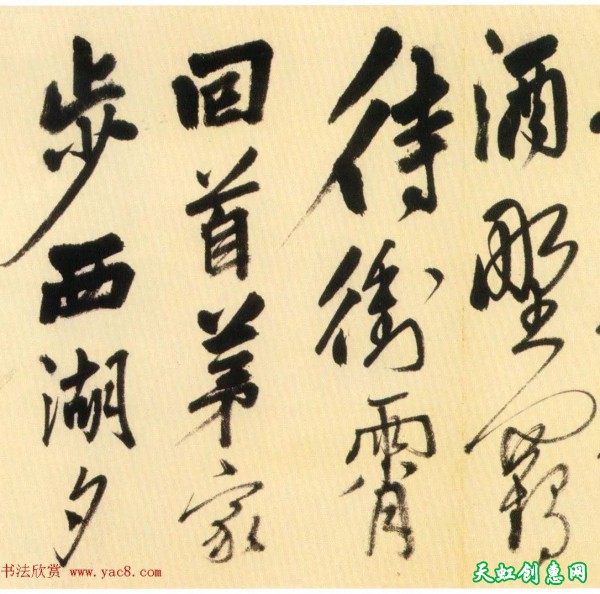 酒野
待衝霄
回首茅家
步西湖夕
书法欣赏 www.yac8.com
天虹创惠网